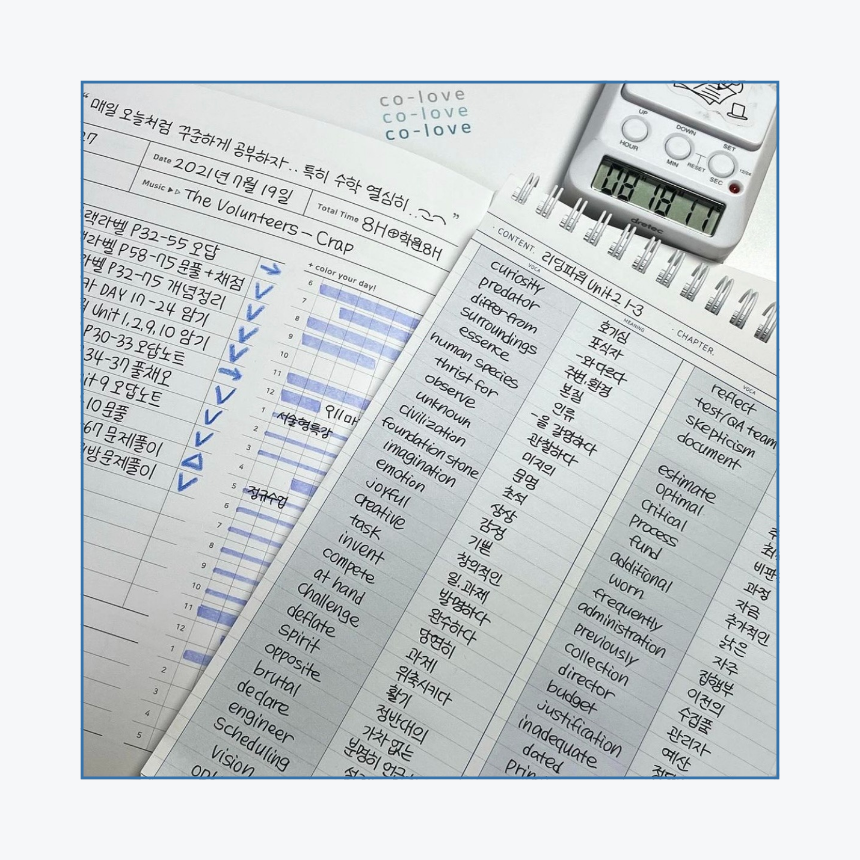 co-love
co-love
co-love
UP
HOUR
DOWN
MIN
SET
SEC
RESET
12/24
dretec
“ 매일 오늘처럼 꾸준하게 공부하자.. 특히 수학 열심히.. ”
Date 2021년 7월 19일
Music The Volunteers - Crap
Total Time 8H 학원8H
+ color your day!
P32-55 오답
P58-75 문풀+채점
P32-75 개념정리
DAY 17-24 암기
Unit 1,2,9,10 암기
P30-33 오답노트
34-37 풀채오
9 오답노트
10 문풀
67 문제풀이
문제풀이
6
7
8
9
10
11
12
1
서술형특강
2
3
4
5
정규수업
6
7
8
9
10
11
12
1
2
3
4
5
· CONTENT. 리딩파워 Unit2 1-3
· CHAPTER.
VOCA
MEANING
VOCA
curiosity 호기심
predator 포식자
differ from -와 다르다
surroundings 주변, 환경
essence 본질
human species 인류
thrist for -을 갈명하다
observe 관찰하다
unknown 미지의
civilization 문명
foundation stone 초석
imagination 상상
emotion 감정
joyful 기쁜
creative 창의적인
task 일, 과제
invent 발명하다
compete 완수하다
at hand 당연히
challenge 과제
deflate 위축시키다
spirit 활기
opposite 정반대의
brutal 가차 없는
declare
engineer
scheduling
vision
reflect
test/QA team
skepticism
document
estimate
optimal
critical 비판
process 과정
fund 자금
additional 추가적인
worn 낡은
frequently 자주
administration 집행부
previously 이전의
collection 수집품
director 관리자
budget 예산
justification
inadequate
dated